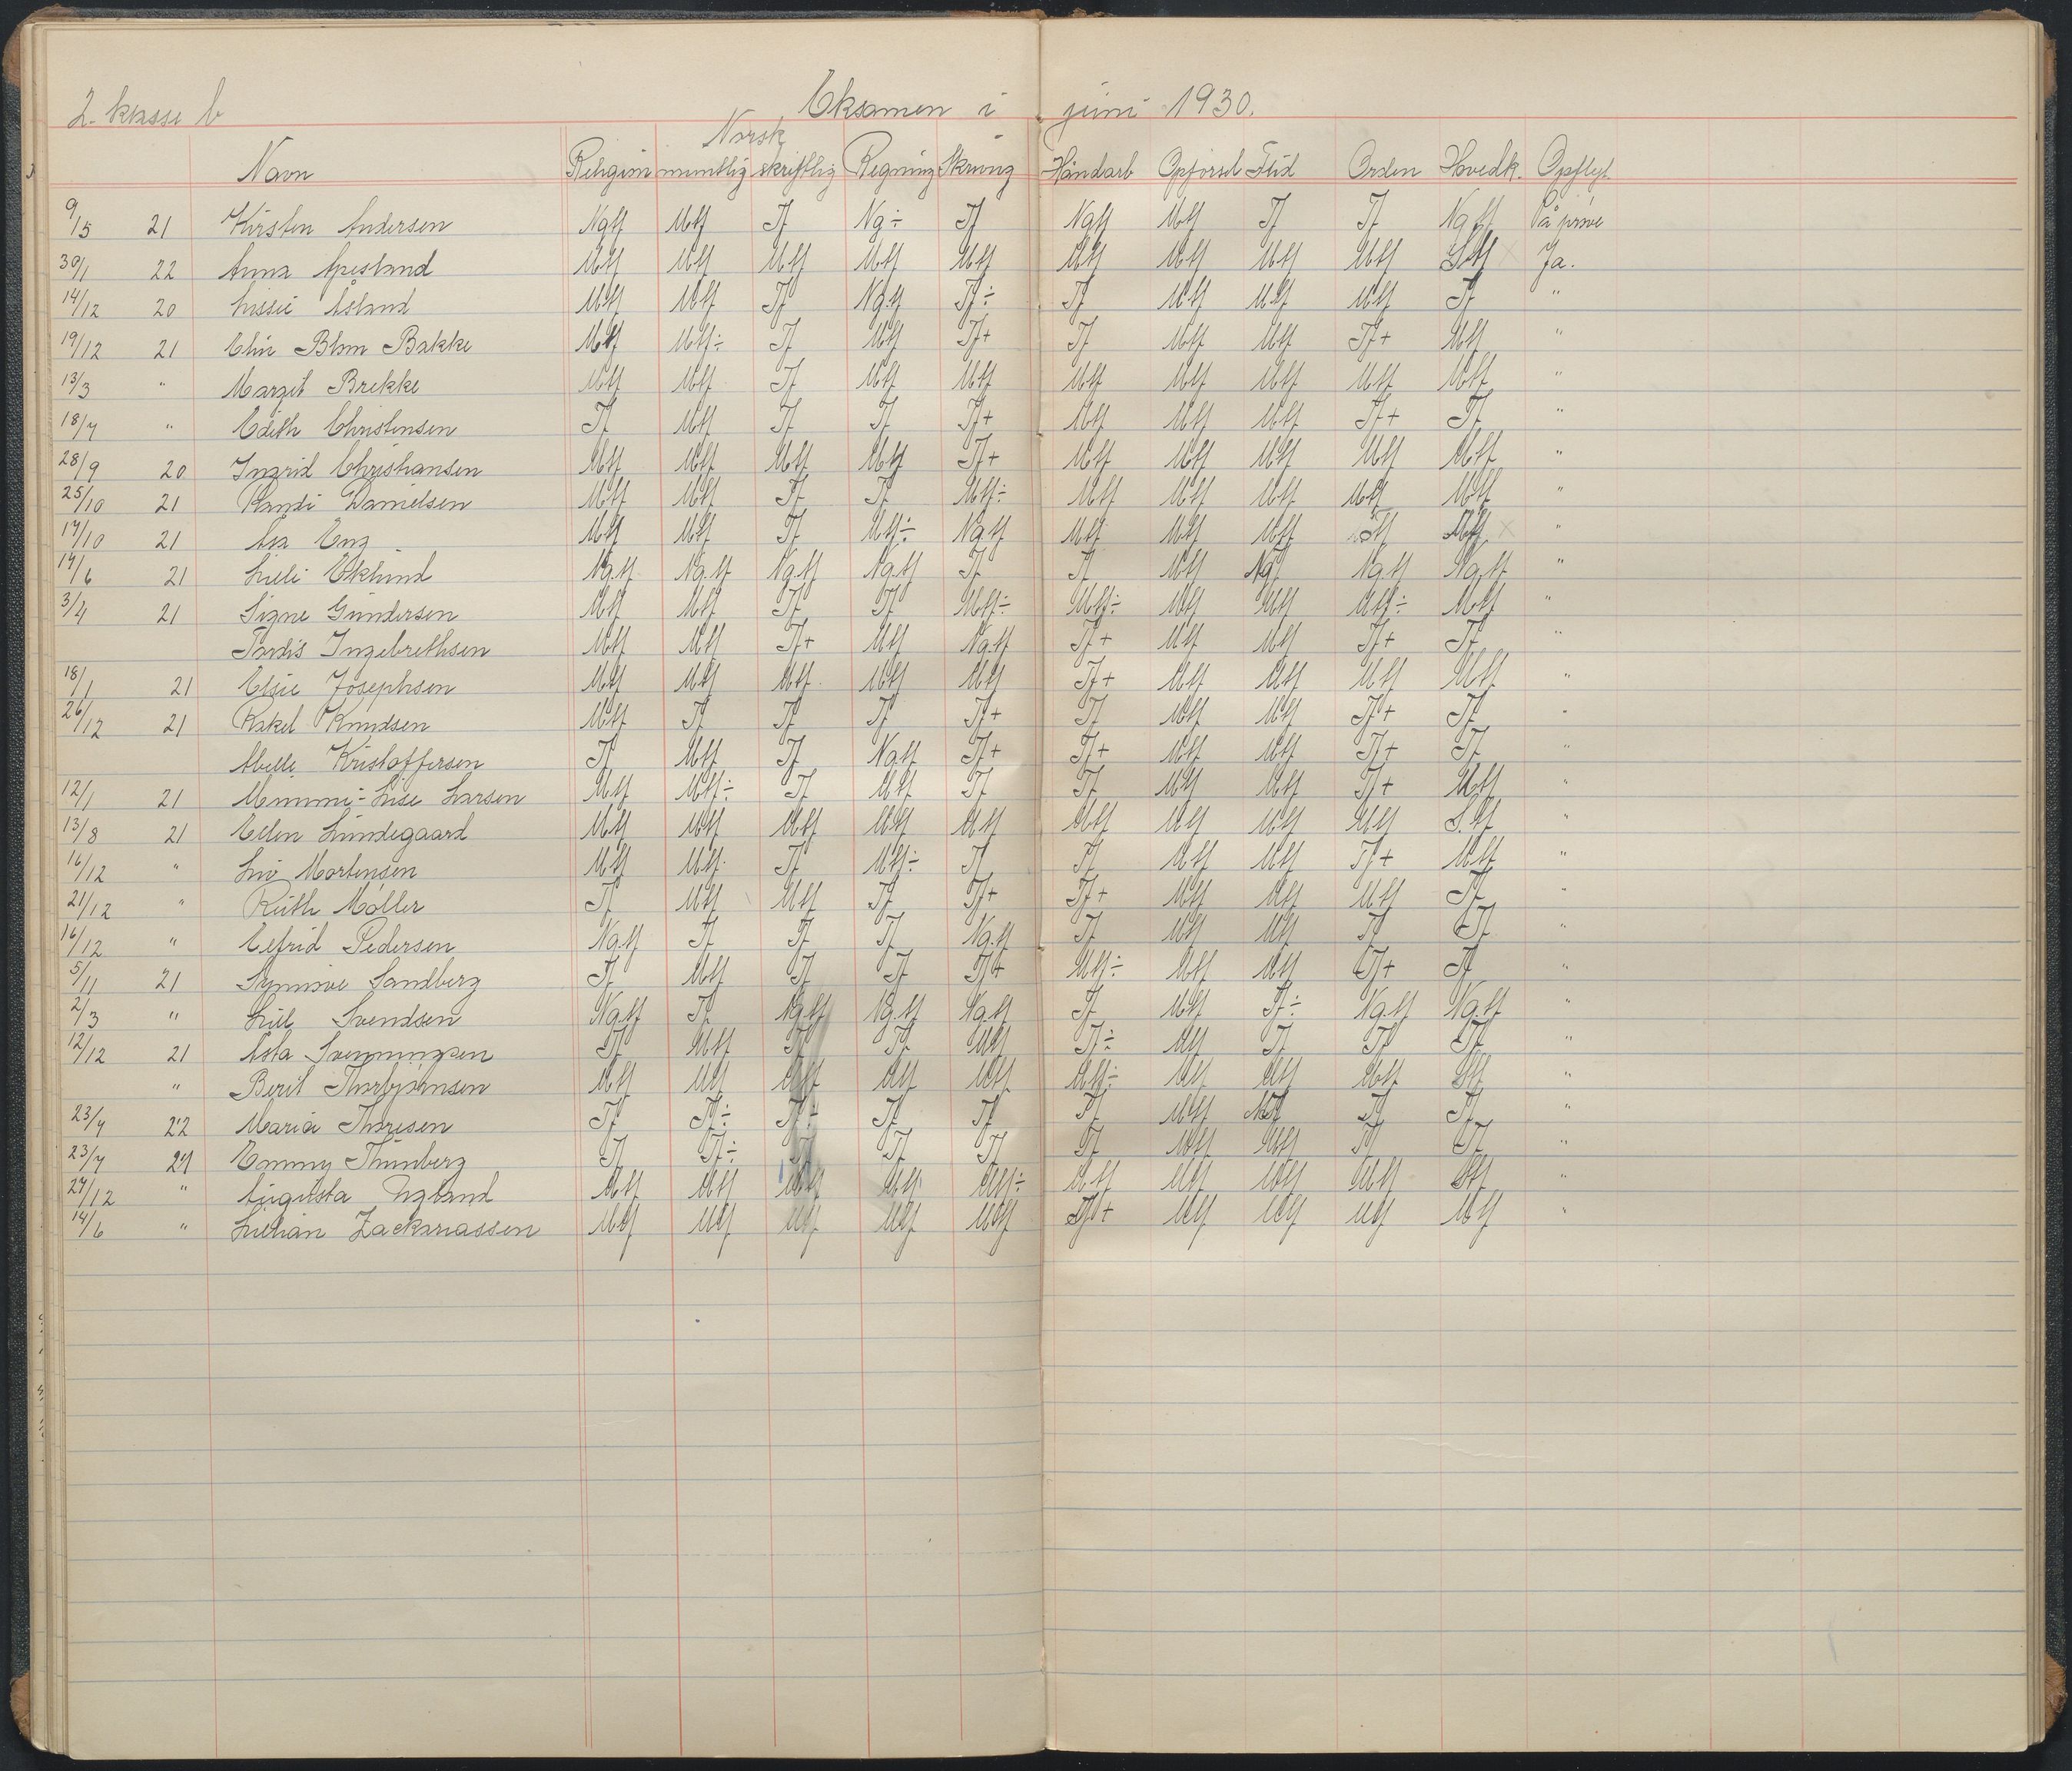 2. klasse b Eksamen i juni 1930.
Norsk
Navn Religion muntlig skriftlig Regning Skriving Håndarb Opførsel Flid Orden Hovedk. Opflyt.
9/5 21 Kirsten Andersen Ngtf Mtf Tf Ng÷ Tf Ngtf Mtf Tf Tf Ngtf På prøve
30/1 22 Anna Apesland Mtf Mtf Mtf Mtf Mtf Mtf Mtf Mtf Mtf Ja.
14/12 20 Lissie Åsland Mtf Mtf Tf Ng.tf Tf÷ Tf Mtf Mtf Mtf Tf "
19/12 21 Elin Blom Bakke Mtf Mtf÷ Tf Mtf Tf+ Tf Mtf Mtf Tf+ Mtf "
13/3 " Margit Brekke Mtf Mtf Tf Mtf Mtf Mtf Mtf Mtf Mtf Mtf "
18/7 " Edith Christensen Tf Mtf Tf Tf Tf+ Mtf Mtf Mtf Tf+ Tf "
28/9 20 Ingrid Christiansen Mtf Mtf Mtf Mtf Tf+ Mtf Mtf Mtf Mtf Mtf "
25/10 21 Randi Danielsen Mtf Mtf Tf Tf Mtf÷ Mtf Mtf Mtf Mtf Mtf "
17/10 21 Åsa Eng Mtf Mtf Tf Mtf÷ Ngtf Mtf Mtf Mtf Mtf "
14/6 21 Lilli Eklund Ng.tf Ng.tf Ng.tf Ng.tf Tf Tf Mtf Ng.tf Ng.tf "
3/4 21 Signe Gundersen Mtf Mtf Tf Tf Mtf÷ Mtf÷ Mtf Mtf Mtf÷ Mtf "
Tordis Ingebrethsen Mtf Mtf Tf+ Mtf Ng.tf Tf+ Mtf Mtf Tf+ Tf "
18/1 21 Elsie Josephsen Mtf Mtf Mtf Mtf Mtf Tf+ Mtf Mtf Mtf Mtf "
26/12 21 Rakel Knudsen Mtf Tf Tf Tf Tf+ Tf Mtf Mtf Tf+ Tf "
Abelle Kristoffersen Tf Mtf Tf Ng.tf Tf+ Tf+ Mtf Mtf Tf+ Tf "
12/1 21 Mummi-Lise Larsen Mtf Mtf÷ Tf Mtf Tf Tf Mtf Mtf Tf+ Mtf "
13/8 21 Ellen Lundegaard Mtf Mtf Mtf Mtf Mtf Mtf Mtf Mtf Mtf S.tf "
16/12 " Liv Mortensen Mtf Mtf Tf Mtf÷ Tf Tf Mtf Mtf Tf+ Mtf "
21/12 " Ruth Møller Tf Mtf Mtf Tf Tf+ Tf+ Mtf Mtf Mtf Tf "
16/12 " Elfrid Pedersen Ng.tf Tf Tf Tf Ng.tf Tf Mtf Mtf Tf Tf "
5/11 21 Synnøve Sandberg Tf Mtf Tf Tf Tf+ Mtf÷ Mtf Mtf Tf+ Tf "
2/3 " Lill Svendsen Ng.tf Tf Ng.tf Ng.tf Ng.tf Tf Mtf Tf÷ Ng.tf Ng.tf "
12/12 21 Asta Svenningsen Tf Mtf Tf Tf Mtf Tf÷ Mtf Tf Tf Tf "
" Berit Thorbjørnsen Mtf Mtf Mtf Mtf Mtf Mtf÷ Mtf Mtf Mtf Stf "
23/4 22 Marie Thoresen Tf Tf÷ Tf÷ Tf Tf Tf Mtf Tf Tf "
23/7 21 Emmy Thunberg Tf Tf÷ Tf Tf Tf Tf Mtf Mtf Tf Tf "
27/12 " Augusta Ugland Mtf Mtf Mtf Mtf Mtf÷ Mtf Mtf Mtf Mtf Stf "
14/6 " Lillian Zackariassen Mtf Mtf Mtf Mtf Mtf Tf+ Mtf Mtf Mtf Mtf "